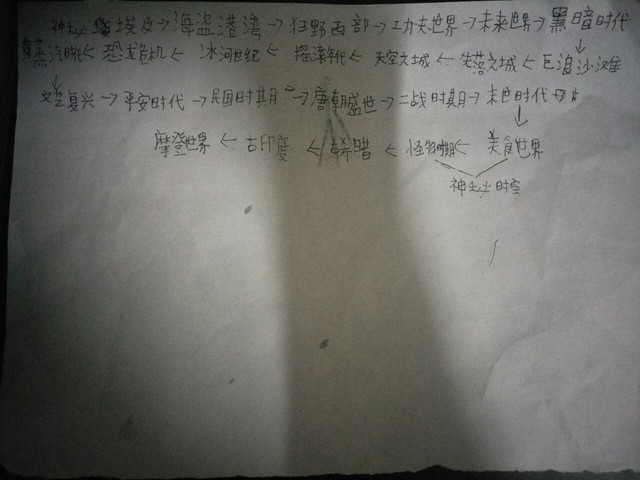 神秘埃及→海盗港湾→狂野西部→功夫世界→未来世界→黑暗时代
蒸汽时代←恐龙危机←冰河世纪←摇滚年代←天空之城←失落之城←巨浪沙滩
文艺复兴→平安时代→民国时期→唐朝盛世→二战时期→末日时代
摩登世界←古印度←希腊←怪物←美食世界
神秘时空